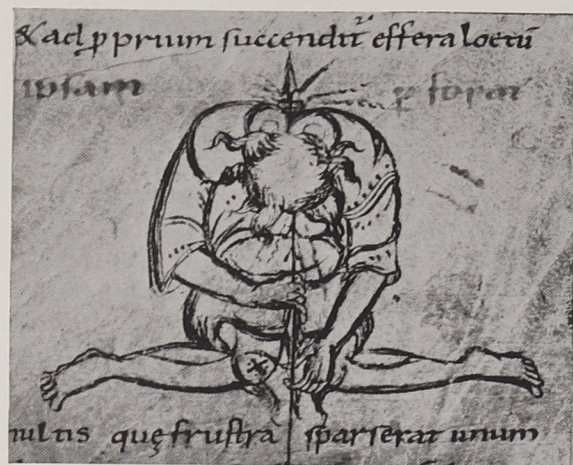 & ad ꝓprium succendit᷑ effera loetū
ipsam ꝑforat
multis quę frustra sparserat unum